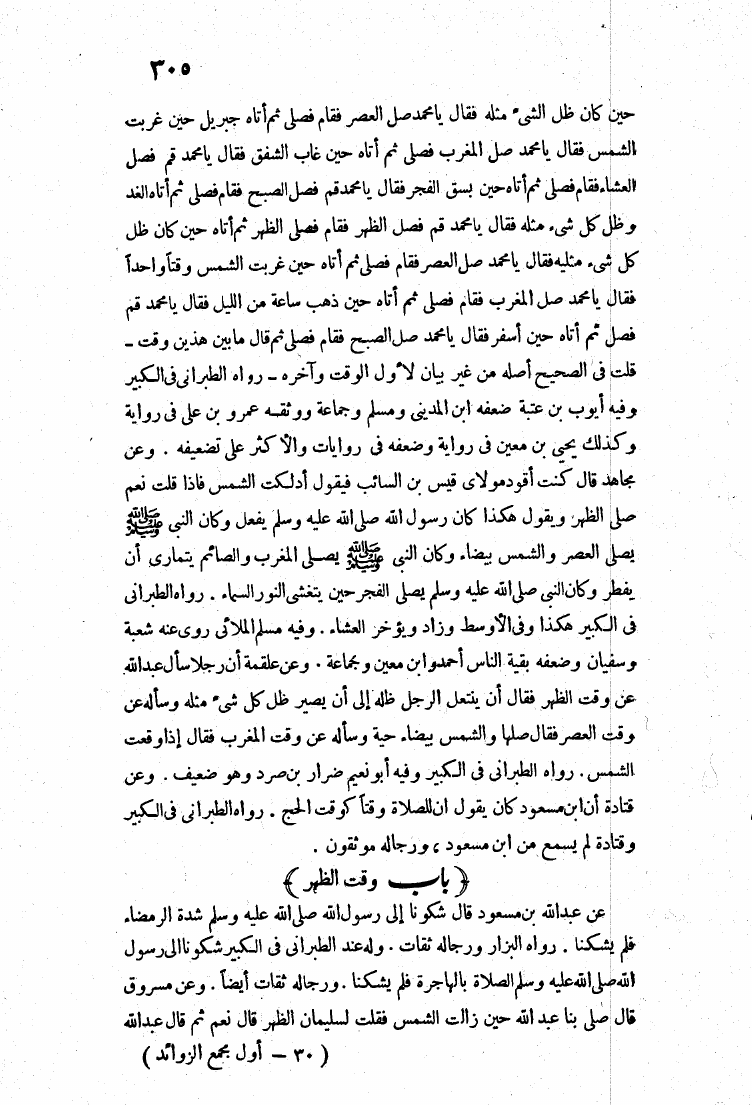 ٣٠٥
حين كان ظل الشىء مثله فقال يا محمد صل العصر فقام فصلى ثم أتاه جبريل حين غربت
الشمس فقال يا محمد صل المغرب فصلى ثم أتاه حين غاب الشفق فقال يا محمد قم فصل
العشاء فقام فصلى ثم أتاه حين بسق الفجر فقال يا محمد قم فصل الصبح فقام فصلى ثم أتاه الغد
وظل كل شىء مثله فقال يا محمد قم فصل الظهر فقام فصلى الظهر ثم أتاه حين كان ظل
كل شىء مثليه فقال يا محمد صل العصر فقام فصلى ثم أتاه حين غربت الشمس وقتاً واحداً
فقال يا محمد صل المغرب فقام فصلى ثم أتاه حين ذهب ساعة من الليل فقال يا محمد قم
فصل ثم أتاه حين أسفر فقال يا محمد صل الصبح فقام فصلى ثم قال ما بين هذين وقت ـ
قلت فى الصحيح أصله من غير بيان لأول الوقت وآخره ـ رواه الطبرانى فى الكبير
وفيه أيوب بن عتبة ضعفه ابن المدينى ومسلم وجماعة ووثقه عمرو بن على فى رواية
وكذلك يحيى بن معين فى رواية وضعفه فى روايات والأكثر على تضعيفه . وعن
مجاهد قال كنت أقود مولاى قيس بن السائب فيقول أدلكت الشمس فاذا قلت نعم
صلى الظهر ويقول هكذا كان رسول الله صلى الله عليه وسلم يفعل وكان النبى ﷺ
يصلى العصر والشمس بيضاء وكان النبى ﷺ يصلى المغرب والصائم يتمارى أن
يفطر وكان النبى صلى الله عليه وسلم يصلى الفجر حين يتغشى النور السماء . رواه الطبرانى
فى الكبير هكذا وفى الأوسط وزاد ويؤخر العشاء . وفيه مسلم الملائى روى عنه شعبة
وسفيان وضعفه بقية الناس أحمد وابن معين وجماعة . وعن علقمة أن رجلا سأل عبد الله
عن وقت الظهر فقال أن ينتعل الرجل ظله إلى أن يصير ظل كل شىء مثله وسأله عن
وقت العصر فقال صلها والشمس بيضاء حية وسأله عن وقت المغرب فقال إذا وقعت
الشمس . رواه الطبرانى فى الكبير وفيه أبو نعيم ضرار بن صرد وهو ضعيف . وعن
قتادة أن ابن مسعود كان يقول ان للصلاة وقتاً كوقت الحج . رواه الطبرانى فى الكبير
وقتادة لم يسمع من ابن مسعود ، ورجاله موثقون .
﴿ باب وقت الظهر ﴾
عن عبد الله بن مسعود قال شكونا إلى رسول الله صلى الله عليه وسلم شدة الرمضاء
فلم يشكنا . رواه البزار ورجاله ثقات . وله عند الطبرانى فى الكبير شكونا الى رسول
الله صلى الله عليه وسلم الصلاة بالهاجرة فلم يشكنا . ورجاله ثقات أيضاً . وعن مسروق
قال صلى بنا عبد الله حين زالت الشمس فقلت لسليمان الظهر قال نعم ثم قال عبد الله
( ٣٠ ـ أول مجمع الزوائد )